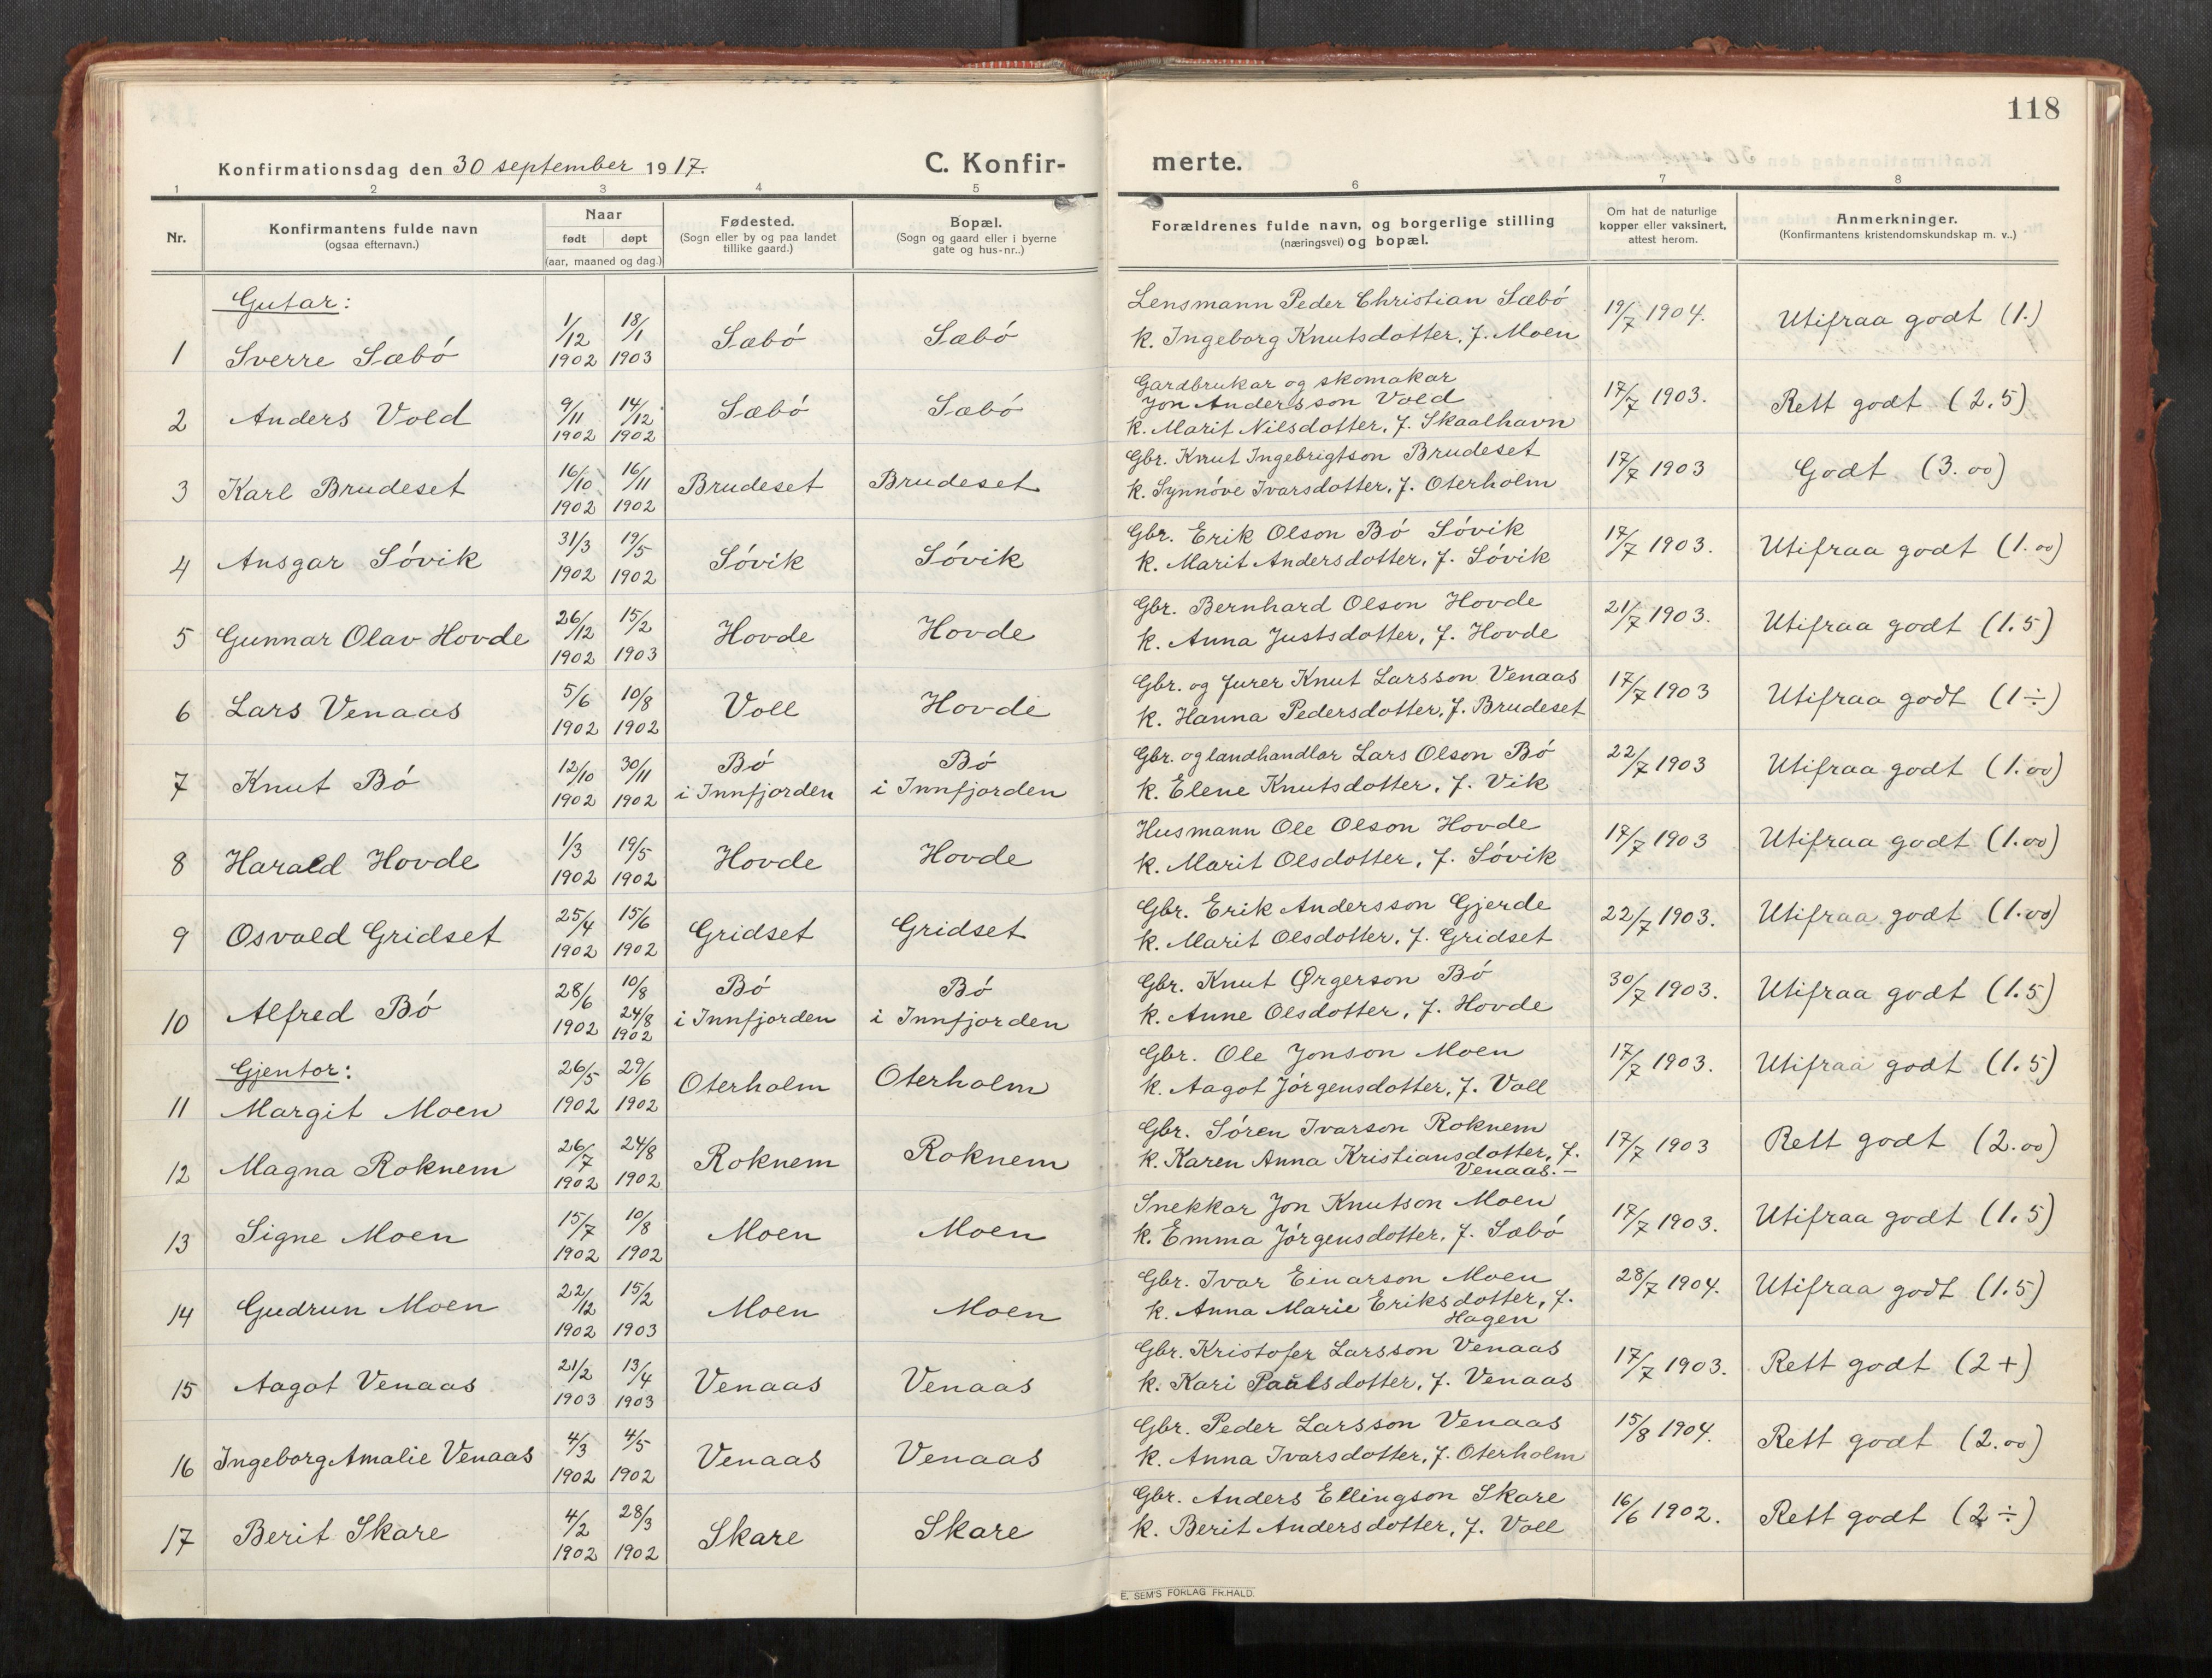 118
Konfirmationsdag den 30 september 1917.
C. Konfir-
merte.
1 2 3 4 5 6 7 8
Nr.
Konfirmantens fulde navn
(ogsaa efternavn.)
Naar
født døpt
(aar, maaned og dag.)
Fødested.
(Sogn eller by og paa landet
tillike gaard.)
Bopæl.
(Sogn og gaard eller i byerne
gate og hus-nr..)
Forældrenes fulde navn, og borgerlige stilling
(næringsvei) og bopæl.
Om hat de naturlige
kopper eller vaksinert,
attest herom.
Anmerkninger.
(Konfirmantens kristendomskundskap m. v..)
Gutar:
1 Sverre Sæbó 1/12 1902 18/1 1903 Sæbó Sæbó
Lensmann Peder Christian Sæbó
k. Ingeborg Knutsdotter, f. Moen
19/7 1904. Utifraa godt (1.)
2 Anders Vold 9/11 1902 14/12 1902 Sæbó Sæbó
Gardbrukar og skomakar
Jon Andersson Vold
k. Marit Nilsdotter, f. Skaalhavn
17/7 1903. Rett godt (2.5)
3 Karl Brudeset 16/10 1902 16/11 1902 Brudeset Brudeset
Gbr. Knut Ingebrigtson Brudeset
k. Synnóve Ivarsdotter, f. Oterholm
17/7 1903 Godt (3.00)
4 Ansgar Sóvik 31/3 1902 19/5 1902 Sóvik Sóvik
Gbr. Erik Olson Bó Sóvik
k. Marit Andersdotter, f. Sóvik
17/7 1903. Utifraa godt (1.00)
5 Gunnar Olav Hovde 26/12 1902 15/2 1903 Hovde Hovde
Gbr. Bernhard Olson Hovde
k. Anna Justsdotter, f. Hovde
21/7 1903. Utifraa godt (1.5)
6 Lars Venaas 5/6 1902 10/8 1902 Voll Hovde
Gbr. og Jurer Knut Larsson Venaas
k. Hanna Pedersdotter, f. Brudeset
17/7 1903 Utifraa godt (1÷)
7 Knut Bó 12/10 1902 30/11 1902 Bó i Innfjorden Bó i Innfjorden
Gbr. og landhandlar Lars Olson Bó
k. Elene Knutsdotter, f. Vik
22/7 1903 Utifraa godt (1.00)
8 Harald Hovde 1/3 1902 19/5 1902 Hovde Hovde
Husmann Ole Olson Hovde
k. Marit Olsdotter, f. Sóvik
17/7 1903 Utifraa godt (1.00)
9 Osvald Gridset 25/4 1902 15/6 1902 Gridset Gridset
Gbr. Erik Andersson Gjerde
k. Marit Olsdotter, f. Gridset
22/7 1903. Utifraa godt (1.00)
10 Alfred Bó 28/6 1902 10/8 24/8 1902 Bó i Innfjorden Bó i Innfjorden
Gbr. Knut Ørgerson Bó
k. Anne Olsdotter, f. Hovde
30/7 1903. Utifraa godt (1.5)
Gjentor:
11 Margit Moen 26/5 1902 29/6 1902 Oterholm Oterholm
Gbr. Ole Jonson Moen
k. Aagot Jórgensdotter, f. Voll
17/7 1903. Utifraa godt (1.5)
12 Magna Roknem 26/7 1902 24/8 1902 Roknem Roknem
Gbr. Sóren Ivarson Roknem
k. Karen Anna Kristiansdotter, f.
Venaas.-
17/7 1903 Rett godt (2.00)
13 Signe Moen 15/7 1902 10/8 1902 Moen Moen
Snekkar Jon Knutson Moen
k. Emma Jórgensdotter, f. Sæbó
17/7 1903. Utifraa godt (1.5)
14 Gudrun Moen 22/12 1902 15/2 1903 Moen Moen
Gbr. Ivar Einarson Moen
k. Anna Marie Eriksdotter, f.
Hagen
28/7 1904. Utifraa godt (1.5)
15 Aagot Venaas 21/2 1903 13/4 1903 Venaas Venaas
Gbr. Kristofer Larsson Venaas
k. Kari Paulsdotter, f. Venaas
17/7 1903. Rett godt (2+)
16 Ingeborg Amalie Venaas 4/3 1902 4/5 1902 Venaas Venaas
Gbr. Peder Larsson Venaas
k. Anna Ivarsdotter, f. Oterholm
15/8 1904. Rett godt (2.00)
17 Berit Skare 4/2 1902 28/3 1902 Skare Skare
Gbr. Anders Ellingson Skare
k. Berit Andersdotter, f. Voll
16/6 1902. Rett godt (2÷)
E. SEM'S FORLAG FR.HALD.